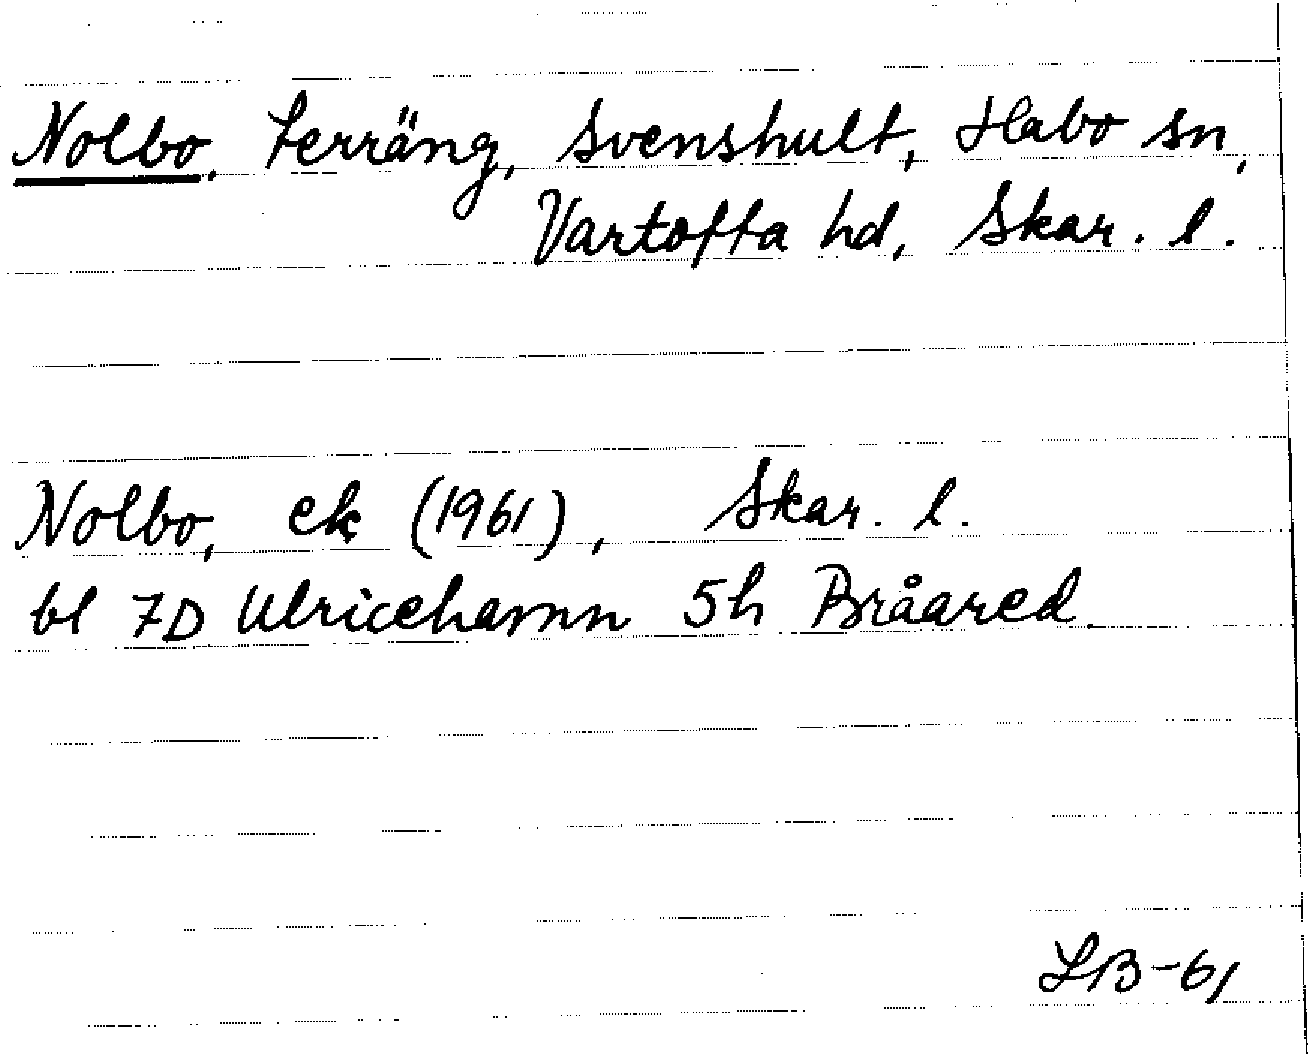 Nolbo, terräng, Svenshult, Habo sn,
Vartofta hd, Skar. l.
Nolbo, ek (1961), Skar. l.
bl 7D Ulricehamn 5h Bråared
LB-61